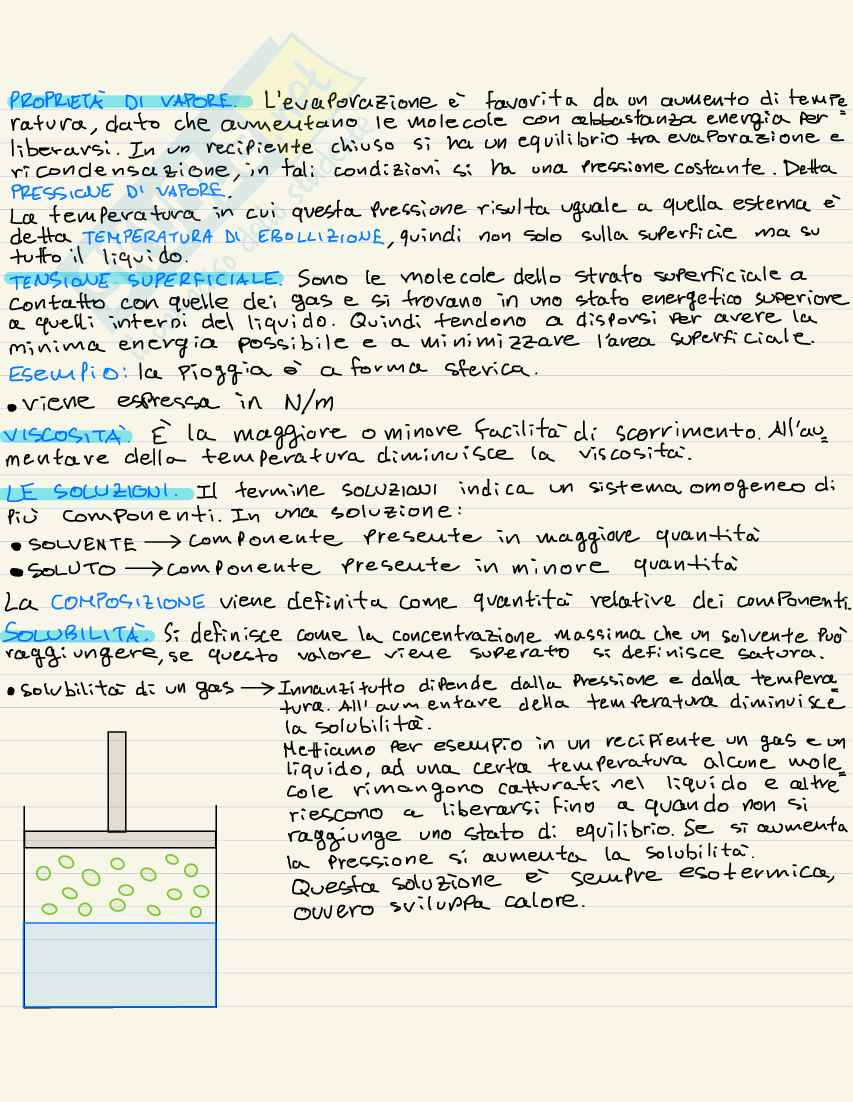 PROPRIETÀ DI VAPORE. L'evaporazione è favorita da un aumento di tempe=
ratura, dato che aumentano le molecole con abbastanza energia per
liberarsi. In un recipiente chiuso si ha un equilibrio tra evaporazione e
ricondensazione, in tali condizioni si ha una pressione costante. Detta
PRESSIONE DI VAPORE.
La temperatura in cui questa pressione risulta uguale a quella esterna è
detta TEMPERATURA DI EBOLLIZIONE, quindi non solo sulla superficie ma su
tutto il liquido.
TENSIONE SUPERFICIALE. Sono le molecole dello strato superficiale a
contatto con quelle dei gas e si trovano in uno stato energetico superiore
a quelli interni del liquido. Quindi tendono a disporsi per avere la
minima energia possibile e a minimizzare l'area superficiale.
Esempio: la pioggia è a forma sferica.
• viene espressa in N/m
VISCOSITÀ. È la maggiore o minore facilità di scorrimento. All'au=
mentare della temperatura diminuisce la viscosità.
LE SOLUZIONI. Il termine SOLUZIONI indica un sistema omogeneo di
più componenti. In una soluzione:
• SOLVENTE → componente presente in maggiore quantità
• SOLUTO → componente presente in minore quantità
La COMPOSIZIONE viene definita come quantità relative dei componenti.
SOLUBILITÀ. Si definisce come la concentrazione massima che un solvente può
raggiungere, se questo valore viene superato si definisce satura.
• solubilità di un gas → Innanzitutto dipende dalla pressione e dalla tempera=
tura. All'aumentare della temperatura diminuisce
la solubilità.
Mettiamo per esempio in un recipiente un gas e un
liquido, ad una certa temperatura alcune mole=
cole rimangono catturati nel liquido e altre
riescono a liberarsi fino a quando non si
raggiunge uno stato di equilibrio. Se si aumenta
la pressione si aumenta la solubilità.
Questa soluzione è sempre esotermica,
ovvero sviluppa calore.